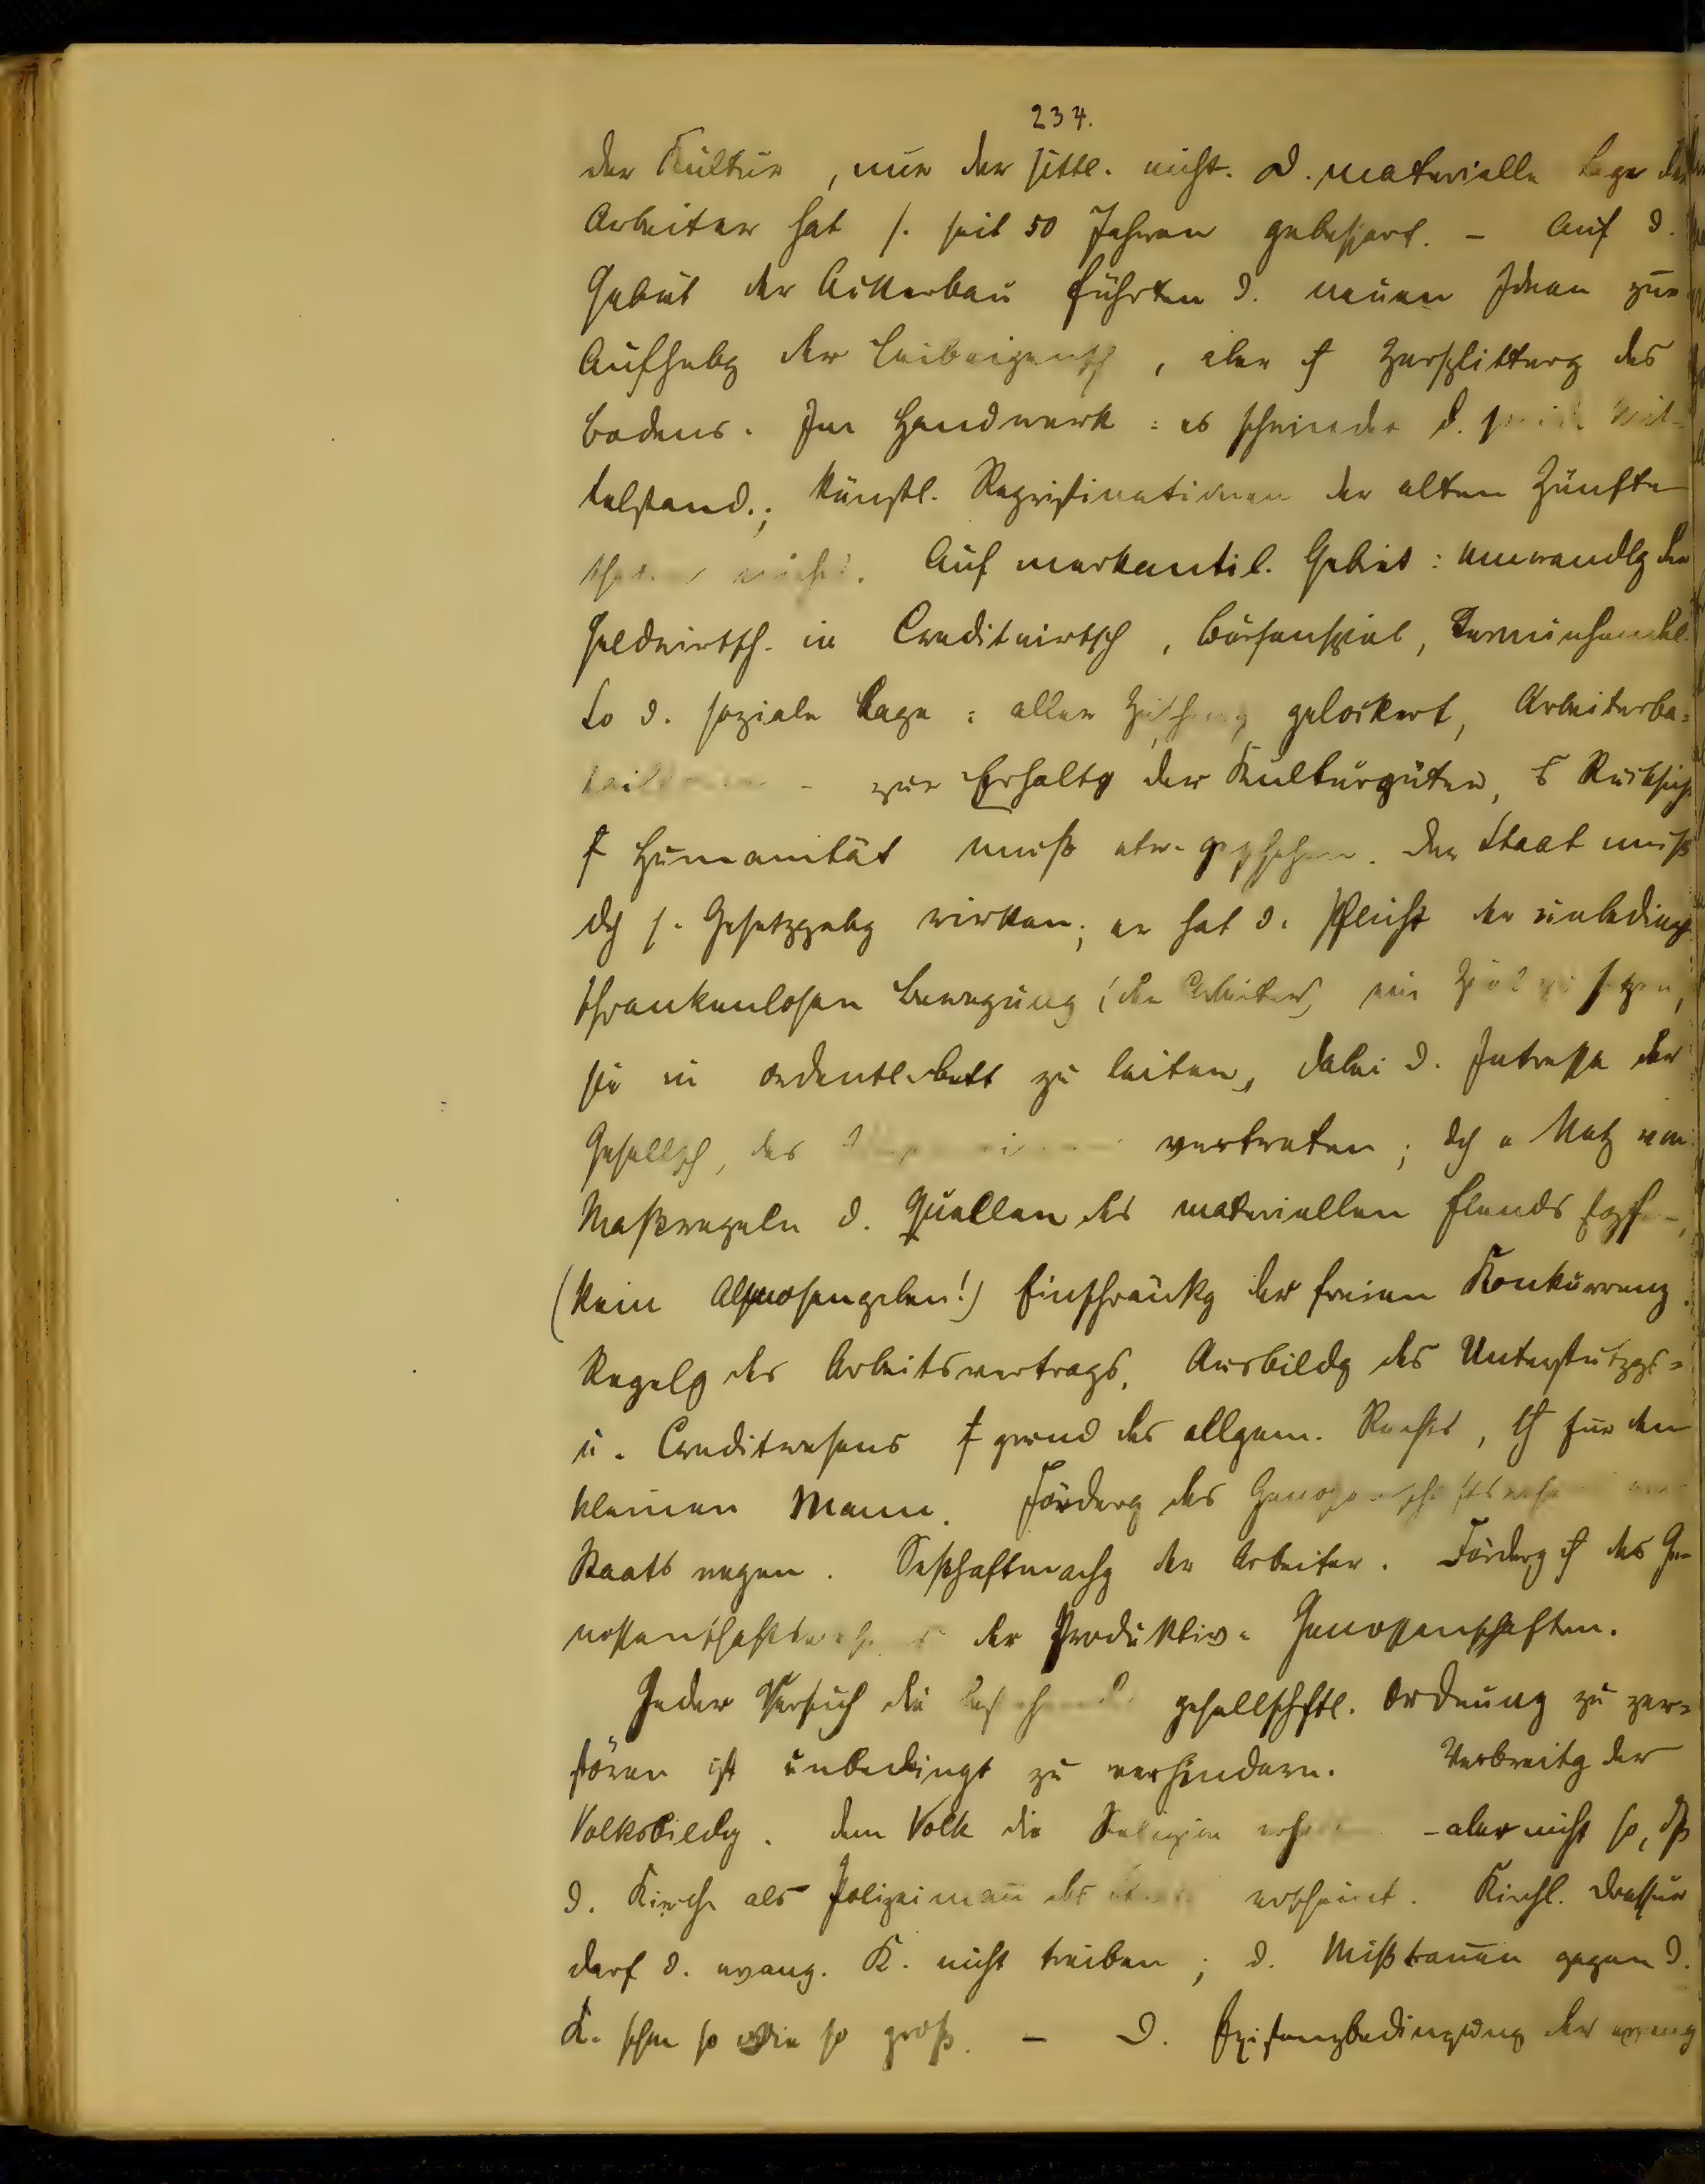 234.
der Kultur, nur der sittl. nicht. D. materielle Lage der
Arbeiter hat s. seit 50 Jahren gebessert. – Auf d.
Gebiet der Ackerbau führten d. neuen Ideen zur
Aufhebg der Leibeigensch, aber Zersplitterg des
Bodens. Im Handwerk: es schwindet d. Mit-
telstand.; künstl. Repristinationen der alten Zünfte
Auf merkantil. Gebiet: Umwandlg der
Geldwirtsch. in Creditwirtsch, Börsenspiel, Terminhandel.
So d. soziale Lage: alles gelockert, Arbeiterba-
– zur Erhaltg der Kulturgüter, Rücksicht
Humanität muß etw. geschehen. Der Staat muß
dch s. Gesetzgebg wirken; er hat d. Pflicht der unbedingt
schrankenlosen Bewegung (der Arbeiter) ein Ziel zu setzen,
sie in ordentl. Bett zu leiten, dabei d. Intresse der
Gesellsch, des vertreten; dch e Netz von
Maßregeln d. Quellen des materiellen Elends
(kein Almosengeben!) Einschränkg der freien Konkurrenz.
Regelg des Arbeitsvertrags, Ausbildg des Unterstützgs-
u. Creditwesens grund des allgem. Rechts, für den
kleinen Mann. Förderg des Genossenschaftswesens
Staats wegen. Seßhaftmachg der Arbeiter. Förderg des Ge-
nossenschaftswesens der Produktiv-Genossenschaften.
Jeder Versuch die bestehende gesellschftl. Ordnung zu zer-
stören ist unbedingt zu verhindern. Verbreitg der
Volksbildg. Dem Volk die Religion – aber nicht so, dß
d. Kirche als Polizeimau des erscheint. Kirchl. Dressur
darf d. evang. K. nicht treiben; d. Mißtrauen gegen d.
K. schon so wie so groß. – D. Existenzbedingung der evang